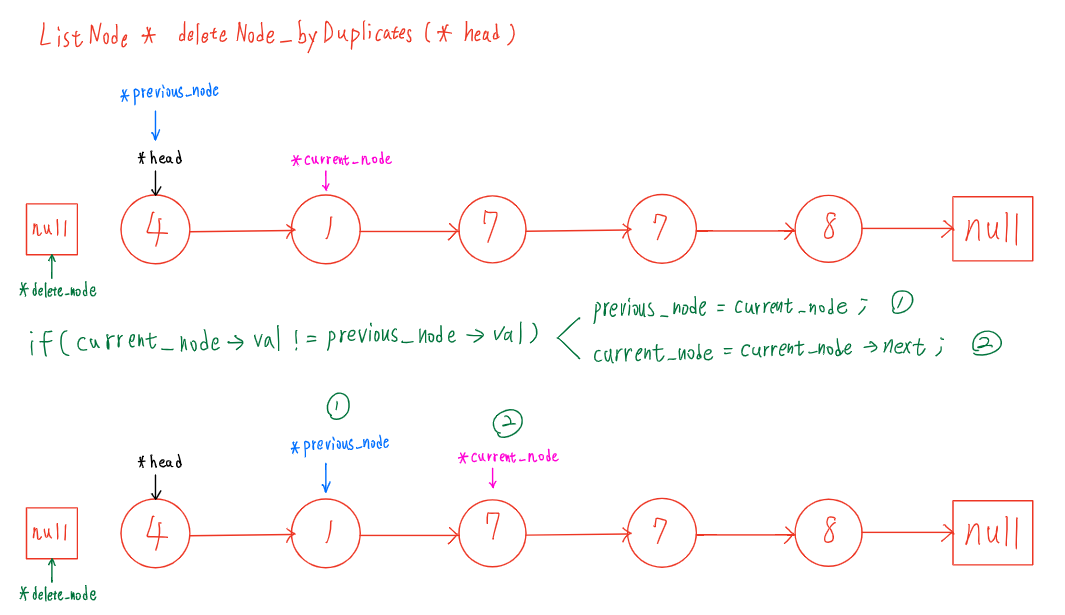 ListNode * deleteNode_byDuplicates (* head)
*previous_node
*head
*current_node
null 4 1 7 7 8 null
*delete_node
if(current_node→val != previous_node→val)
previous_node = current_node ; ①
current_node = current_node →next ; ②
① ②
*previous_node
*head
*current_node
null 4 1 7 7 8 null
*delete_node